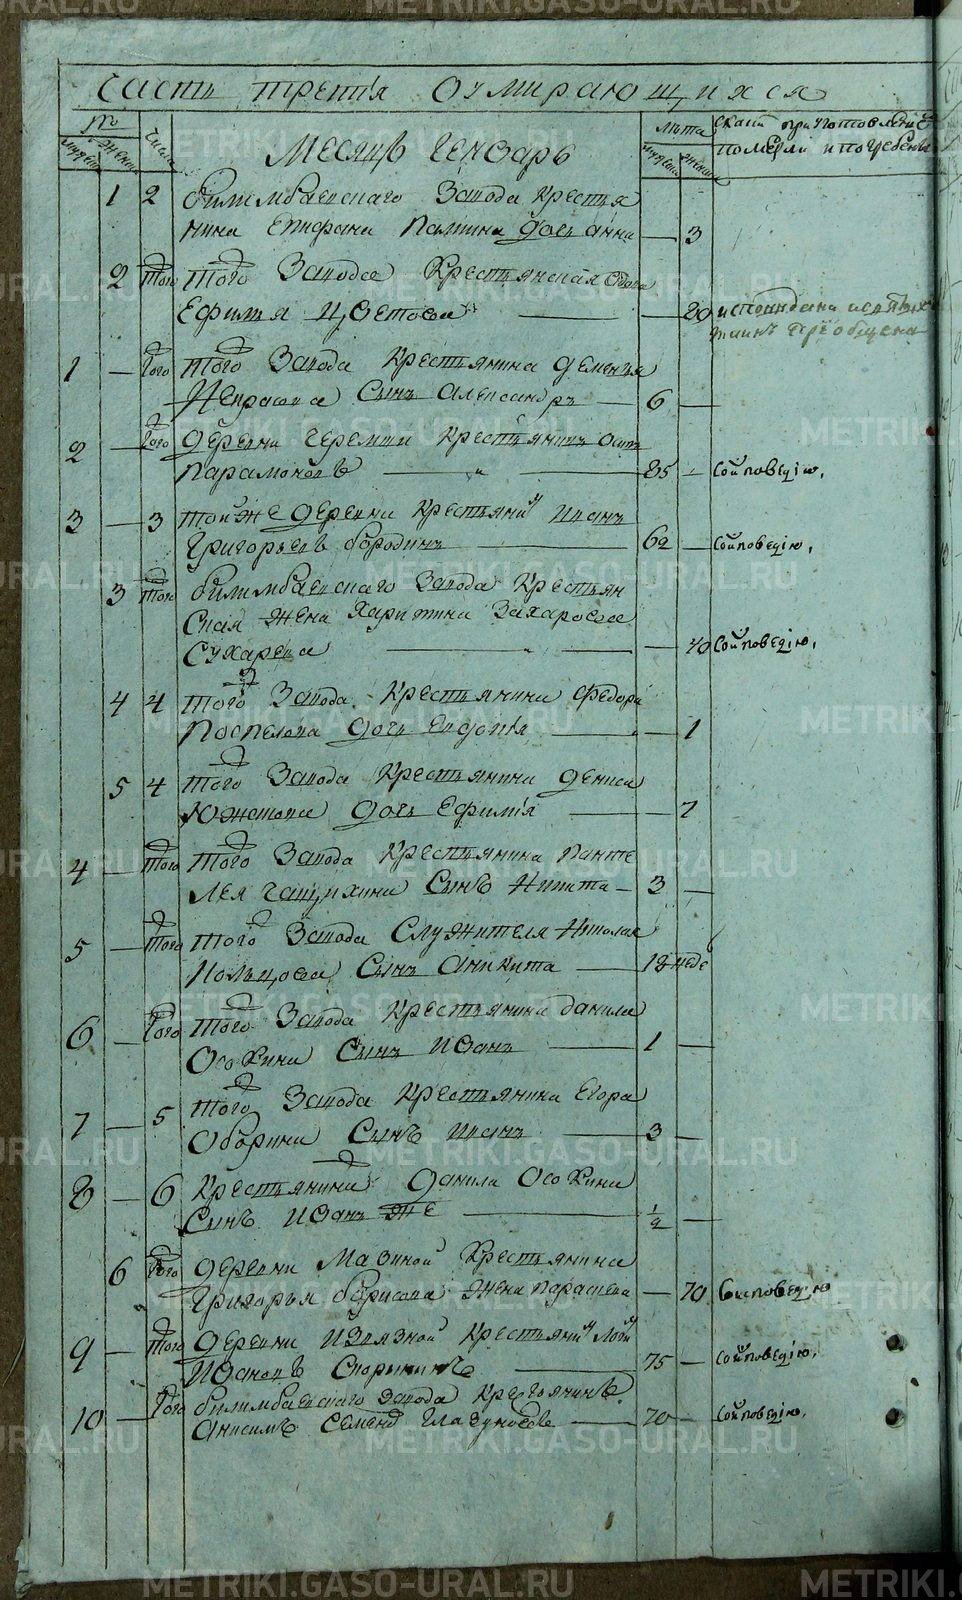 часть третiя о умирающихся
№ числа Месяцъ Генварь лѣта скаким приготовлением
мужска женска мужска женска померли и погребены
1 2 билимбаевскаго завода крестья
нина Епифана Пашина дочь анна — 3
2 того того завода крестьянская вдова
Ефимiя Цветова — 80 исповедана и святых
таинъ преобщена
1 — того того завода крестьянина дементья
Некрасова сынъ александръ — 6 —
2 — того деревни черемши крестьянинъ осип
Парамоновъ — 85 — соисповедiю,
3 — 3 той же деревни крестьянинъ иванъ
григорьевъ бородинъ — 62 — соисповедiю,
3 того билимбаевскаго завода крестьян
ская жена харитина захарова
Сухарева — 40 соисповедiю,
4 4 того завода крестьянина федора
Поспелова дочь евдокiя — 1
5 4 того завода крестьянина дениса
Южакова дочь Ефимiя — 7
4 — того того завода крестьянина панте
лея чащихина сынъ никита — 3 —
5 — того того завода служителя николая
Кольцова сынъ аникита — 18 неде
6 — того того завода крестьянина данила
Осокина сынъ иванъ — 1 —
7 — 5 того завода крестьянина Егора
Оборина сынъ иванъ — 3 —
8 — 6 крестьянина данила Осокина
сынъ иванъ же — 1/2 —
6 того деревни Мазиной крестьянина
григорья борисова жена парасковa — 70 соисповедiю
9 — того деревни извязной крестьянинъ
Ивановъ Скорынинъ — 75 — соисповедiю,
10 — того билимбаевскаго завода крестьянинъ
анисимъ Семенов гладуновъ — 70 — соисповедiю,
METRIKI.GASO-URAL.RU